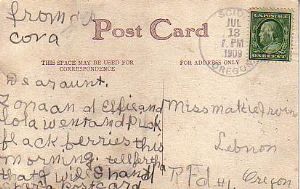 from der
cora
Post Card
THIS SPACE MAY BE USED FOR
CORRESPONDENCE
SCIO
JUL
13
7 PM
1909
OREGON
Dear aunt.
and Elfie and
lola went and pick
black berries this
morning. tell
that I will hand
postcard
Miss matie Irvin
Lebnon
R F d #1 Oregon